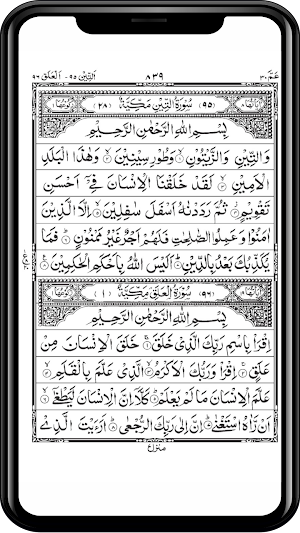 عـمّ ٣٠ ٨٣٩ التين ٩٥ - العلق ٩٦
(٩٥) سُوْرَةُ التِّيْنِ مَكِّيَّةٌ (٢٨)
بِسْمِ اللهِ الرَّحْمٰنِ الرَّحِيْمِ
وَالتِّيْنِ وَالزَّيْتُوْنِ ۙ وَطُوْرِ سِيْنِيْنَ ۙ وَهٰذَا الْبَلَدِ
الْاَمِيْنِ ۙ لَقَدْ خَلَقْنَا الْاِنْسَانَ فِيْٓ اَحْسَنِ
تَقْوِيْمٍ ۙ ثُمَّ رَدَدْنٰهُ اَسْفَلَ سٰفِلِيْنَ ۙ اِلَّا الَّذِيْنَ
اٰمَنُوْا وَعَمِلُوا الصّٰلِحٰتِ فَلَهُمْ اَجْرٌ غَيْرُ مَمْنُوْنٍ ۗ فَمَا
يُكَذِّبُكَ بَعْدُ بِالدِّيْنِ ۗ اَلَيْسَ اللهُ بِاَحْكَمِ الْحٰكِمِيْنَ
(٩٦) سُوْرَةُ الْعَلَقِ مَكِّيَّةٌ (١)
بِسْمِ اللهِ الرَّحْمٰنِ الرَّحِيْمِ
اِقْرَاْ بِاسْمِ رَبِّكَ الَّذِيْ خَلَقَ ۚ خَلَقَ الْاِنْسَانَ مِنْ
عَلَقٍ ۚ اِقْرَاْ وَرَبُّكَ الْاَكْرَمُ ۙ الَّذِيْ عَلَّمَ بِالْقَلَمِ ۙ
عَلَّمَ الْاِنْسَانَ مَا لَمْ يَعْلَمْ ۗ كَلَّآ اِنَّ الْاِنْسَانَ لَيَطْغٰٓى ۙ
اَنْ رَّاٰهُ اسْتَغْنٰى ۗ اِنَّ اِلٰى رَبِّكَ الرُّجْعٰى ۗ اَرَءَيْتَ الَّذِيْ
منزل